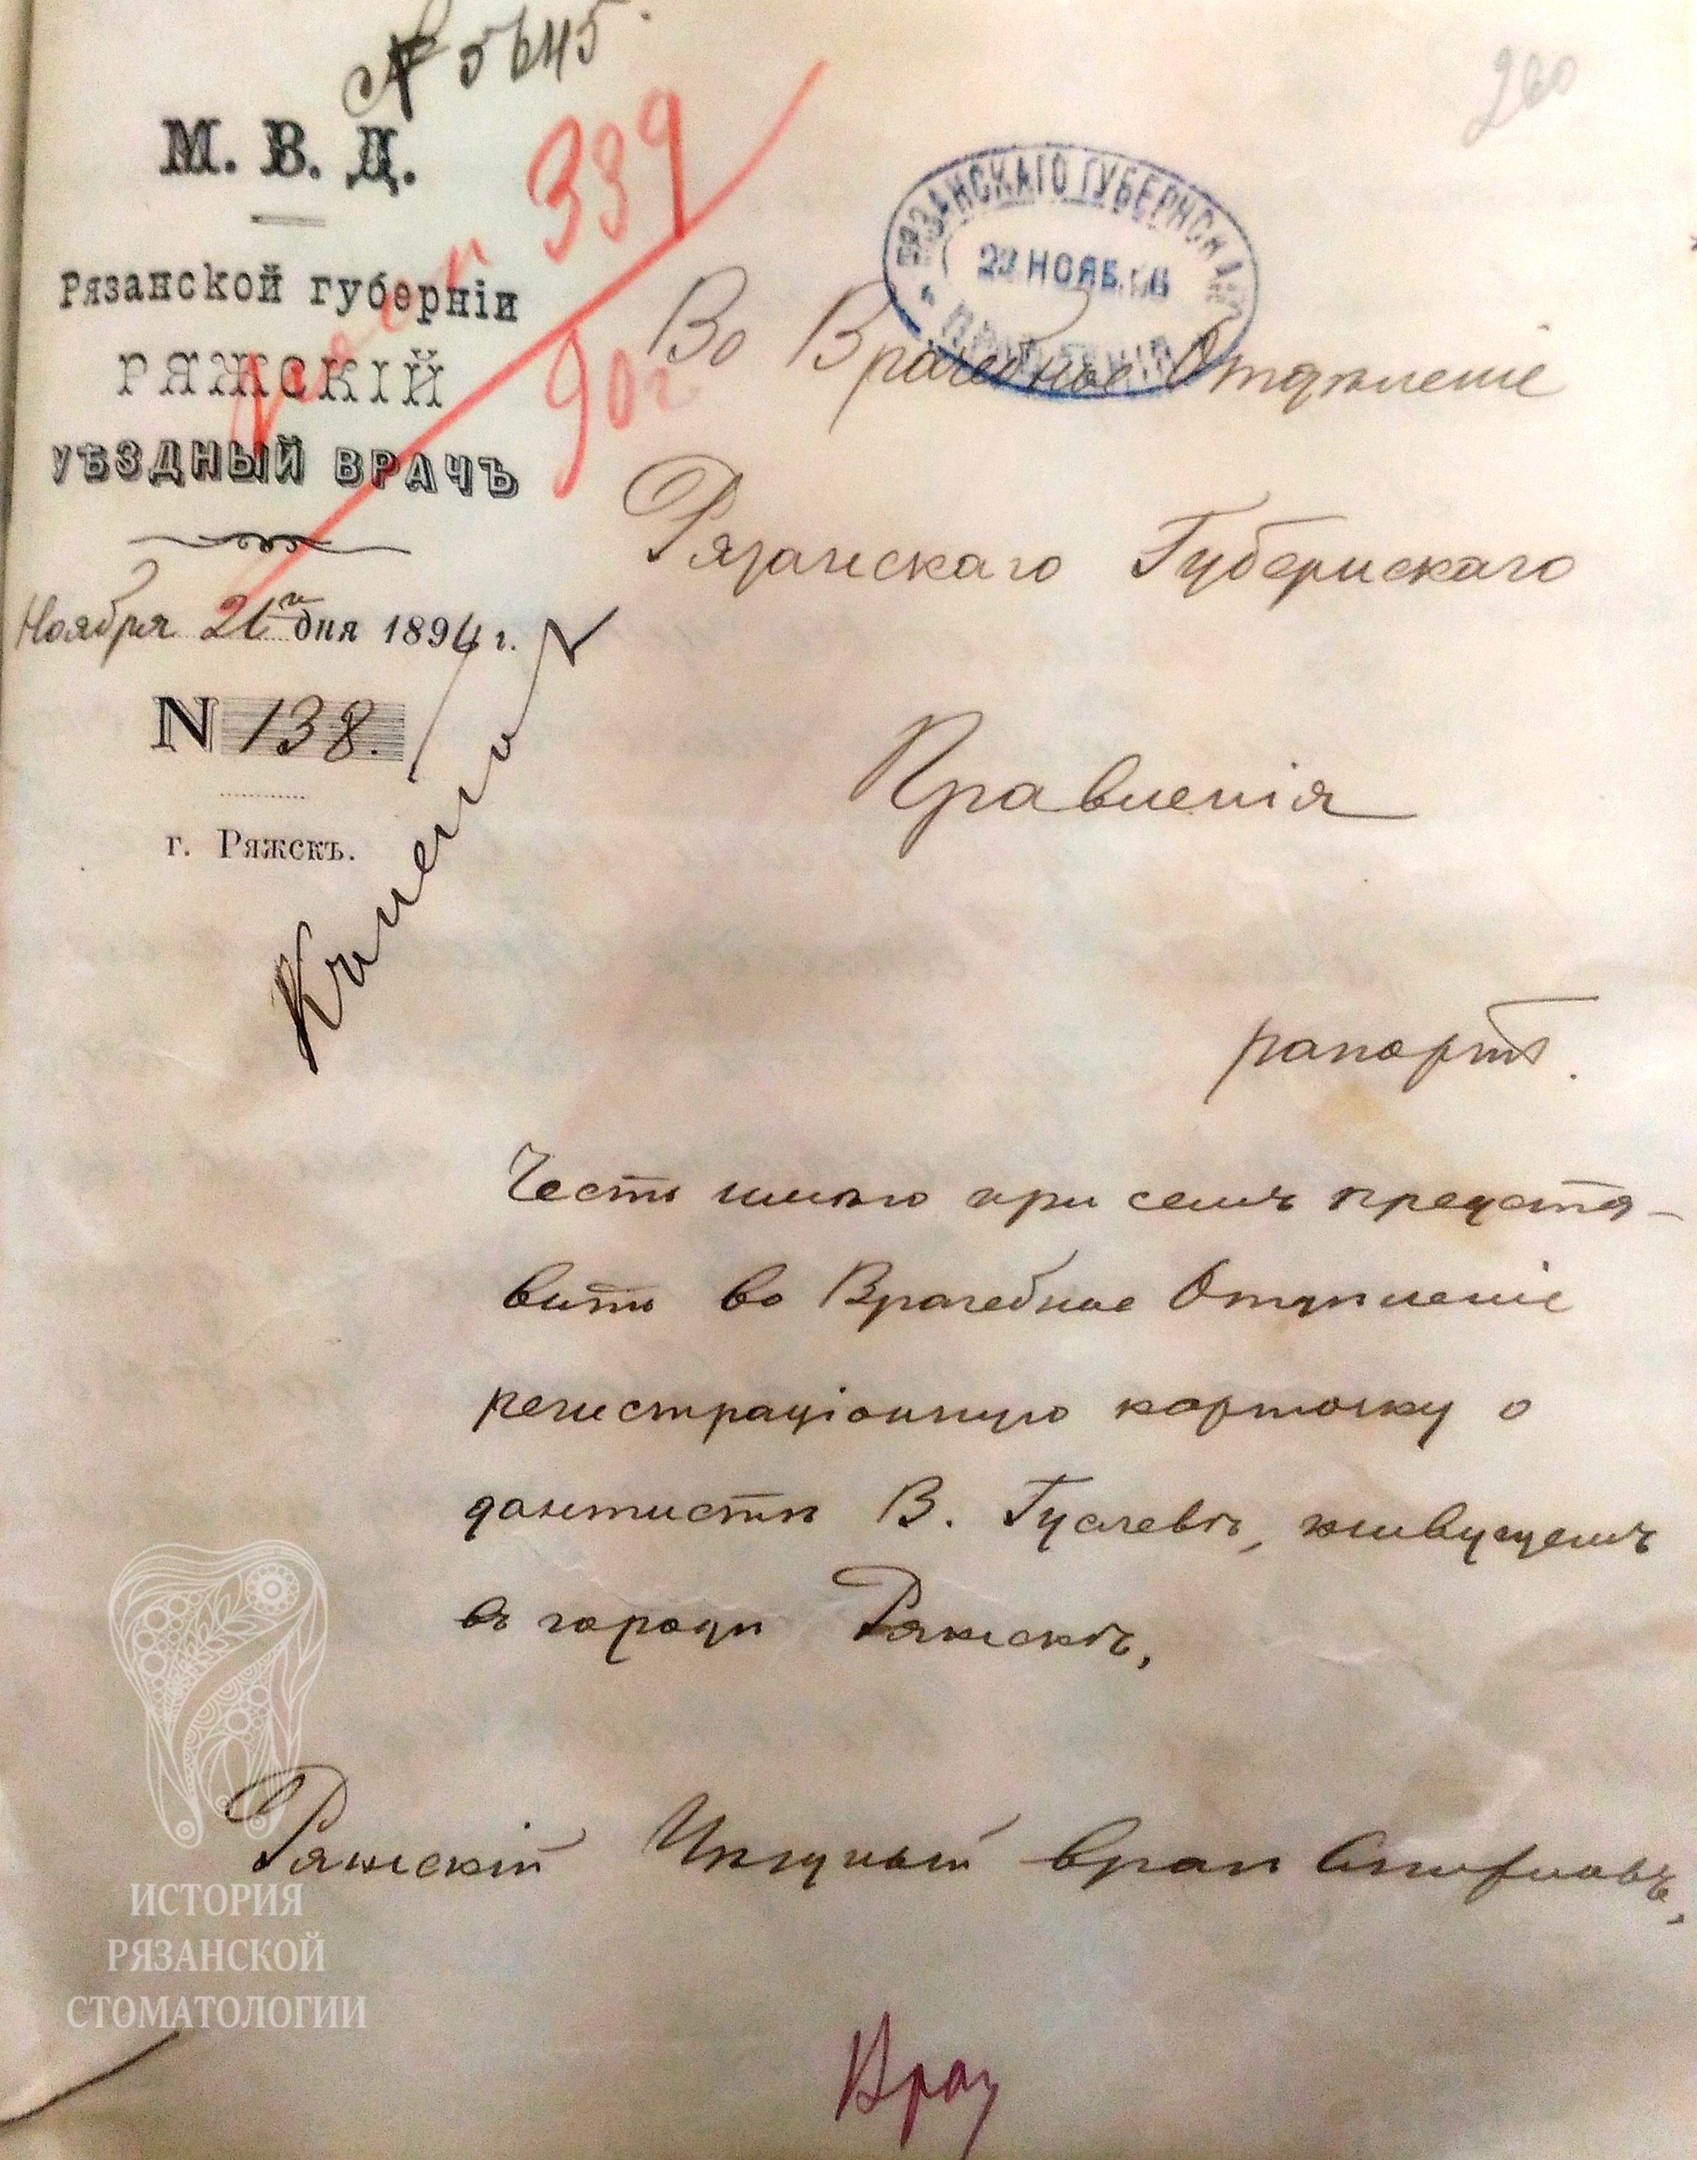 № 5645.
260
М. В. Д.
Рязанской губерніи
РЯЖСКІЙ
УѢЗДНЫЙ ВРАЧЪ
Ноября 21го дня 1896 г.
N 138.
г. Ряжскъ.
339
90 г
РЯЗАНСКАГО ГУБЕРНСК
23 НОЯБ. 96
ПРАВЛЕНІЯ
Во Врачебное Отдѣленіе
Рязанскаго Губернскаго
Правленія
рапортъ.
Честь имѣю при семъ предста-
вить во Врачебное Отдѣленіе
регистраціонную карточку о
дантистѣ В. Гусевѣ, живущемъ
въ городѣ Ряжскѣ,
Ряжскій Уѣздный врач
Врач
ИСТОРИЯ
РЯЗАНСКОЙ
СТОМАТОЛОГИИ